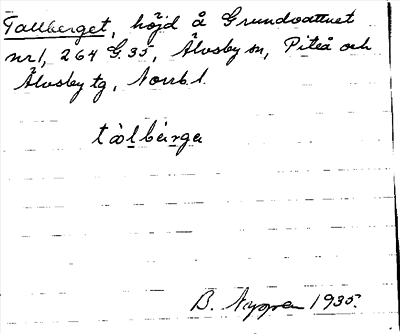 Tallberget, höjd å Grundvattnet
nr 1, 264 G. 35, Älvsby sn, Piteå och
Älvsby tg, Norrb. l.
tàlbèrge
B. Nygren 1935.